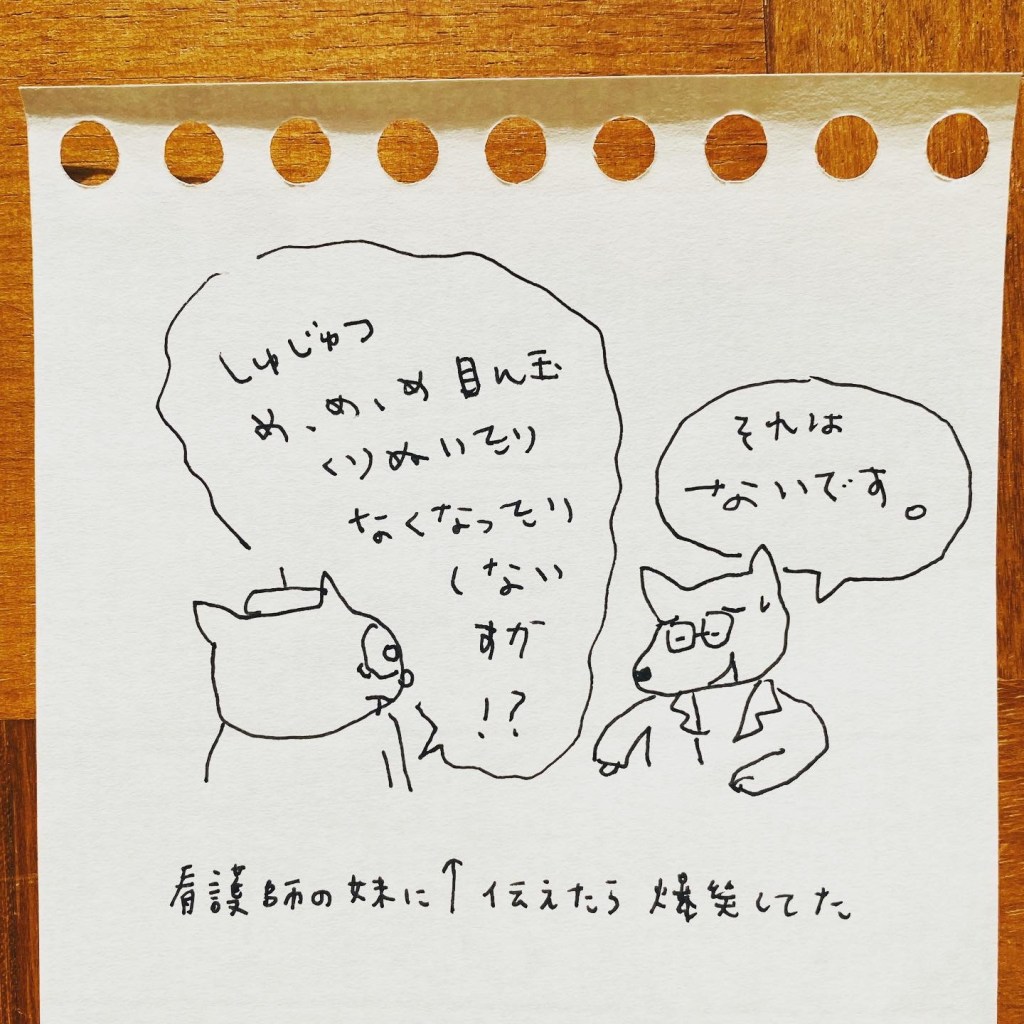 しゅじゅつ
め、め、め 目ん玉
くりぬいたり
なくなったり
しない
すか
!?
それは
ないです。
看護師の妹に↑伝えたら 爆笑してた